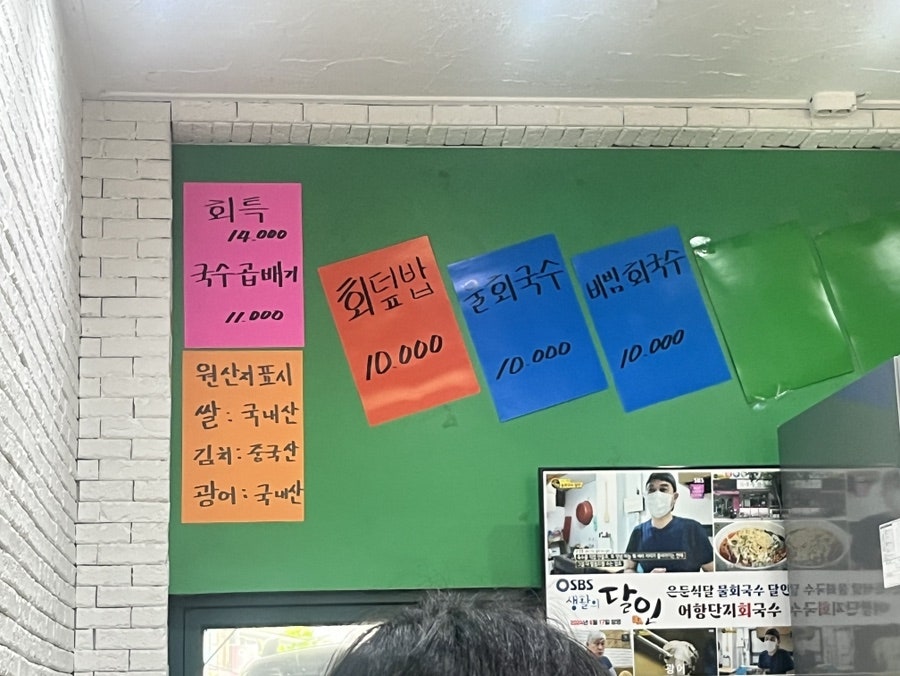 회특
14.000
국수곱배기
11.000
원산지표시
쌀 : 국내산
김치 : 중국산
광어 : 국내산
회덮밥
10.000
물회국수
10.000
비빔회국수
10.000
SBS
생활의
달인
은둔식달 물회국수 달인
어항단지회국수
광어